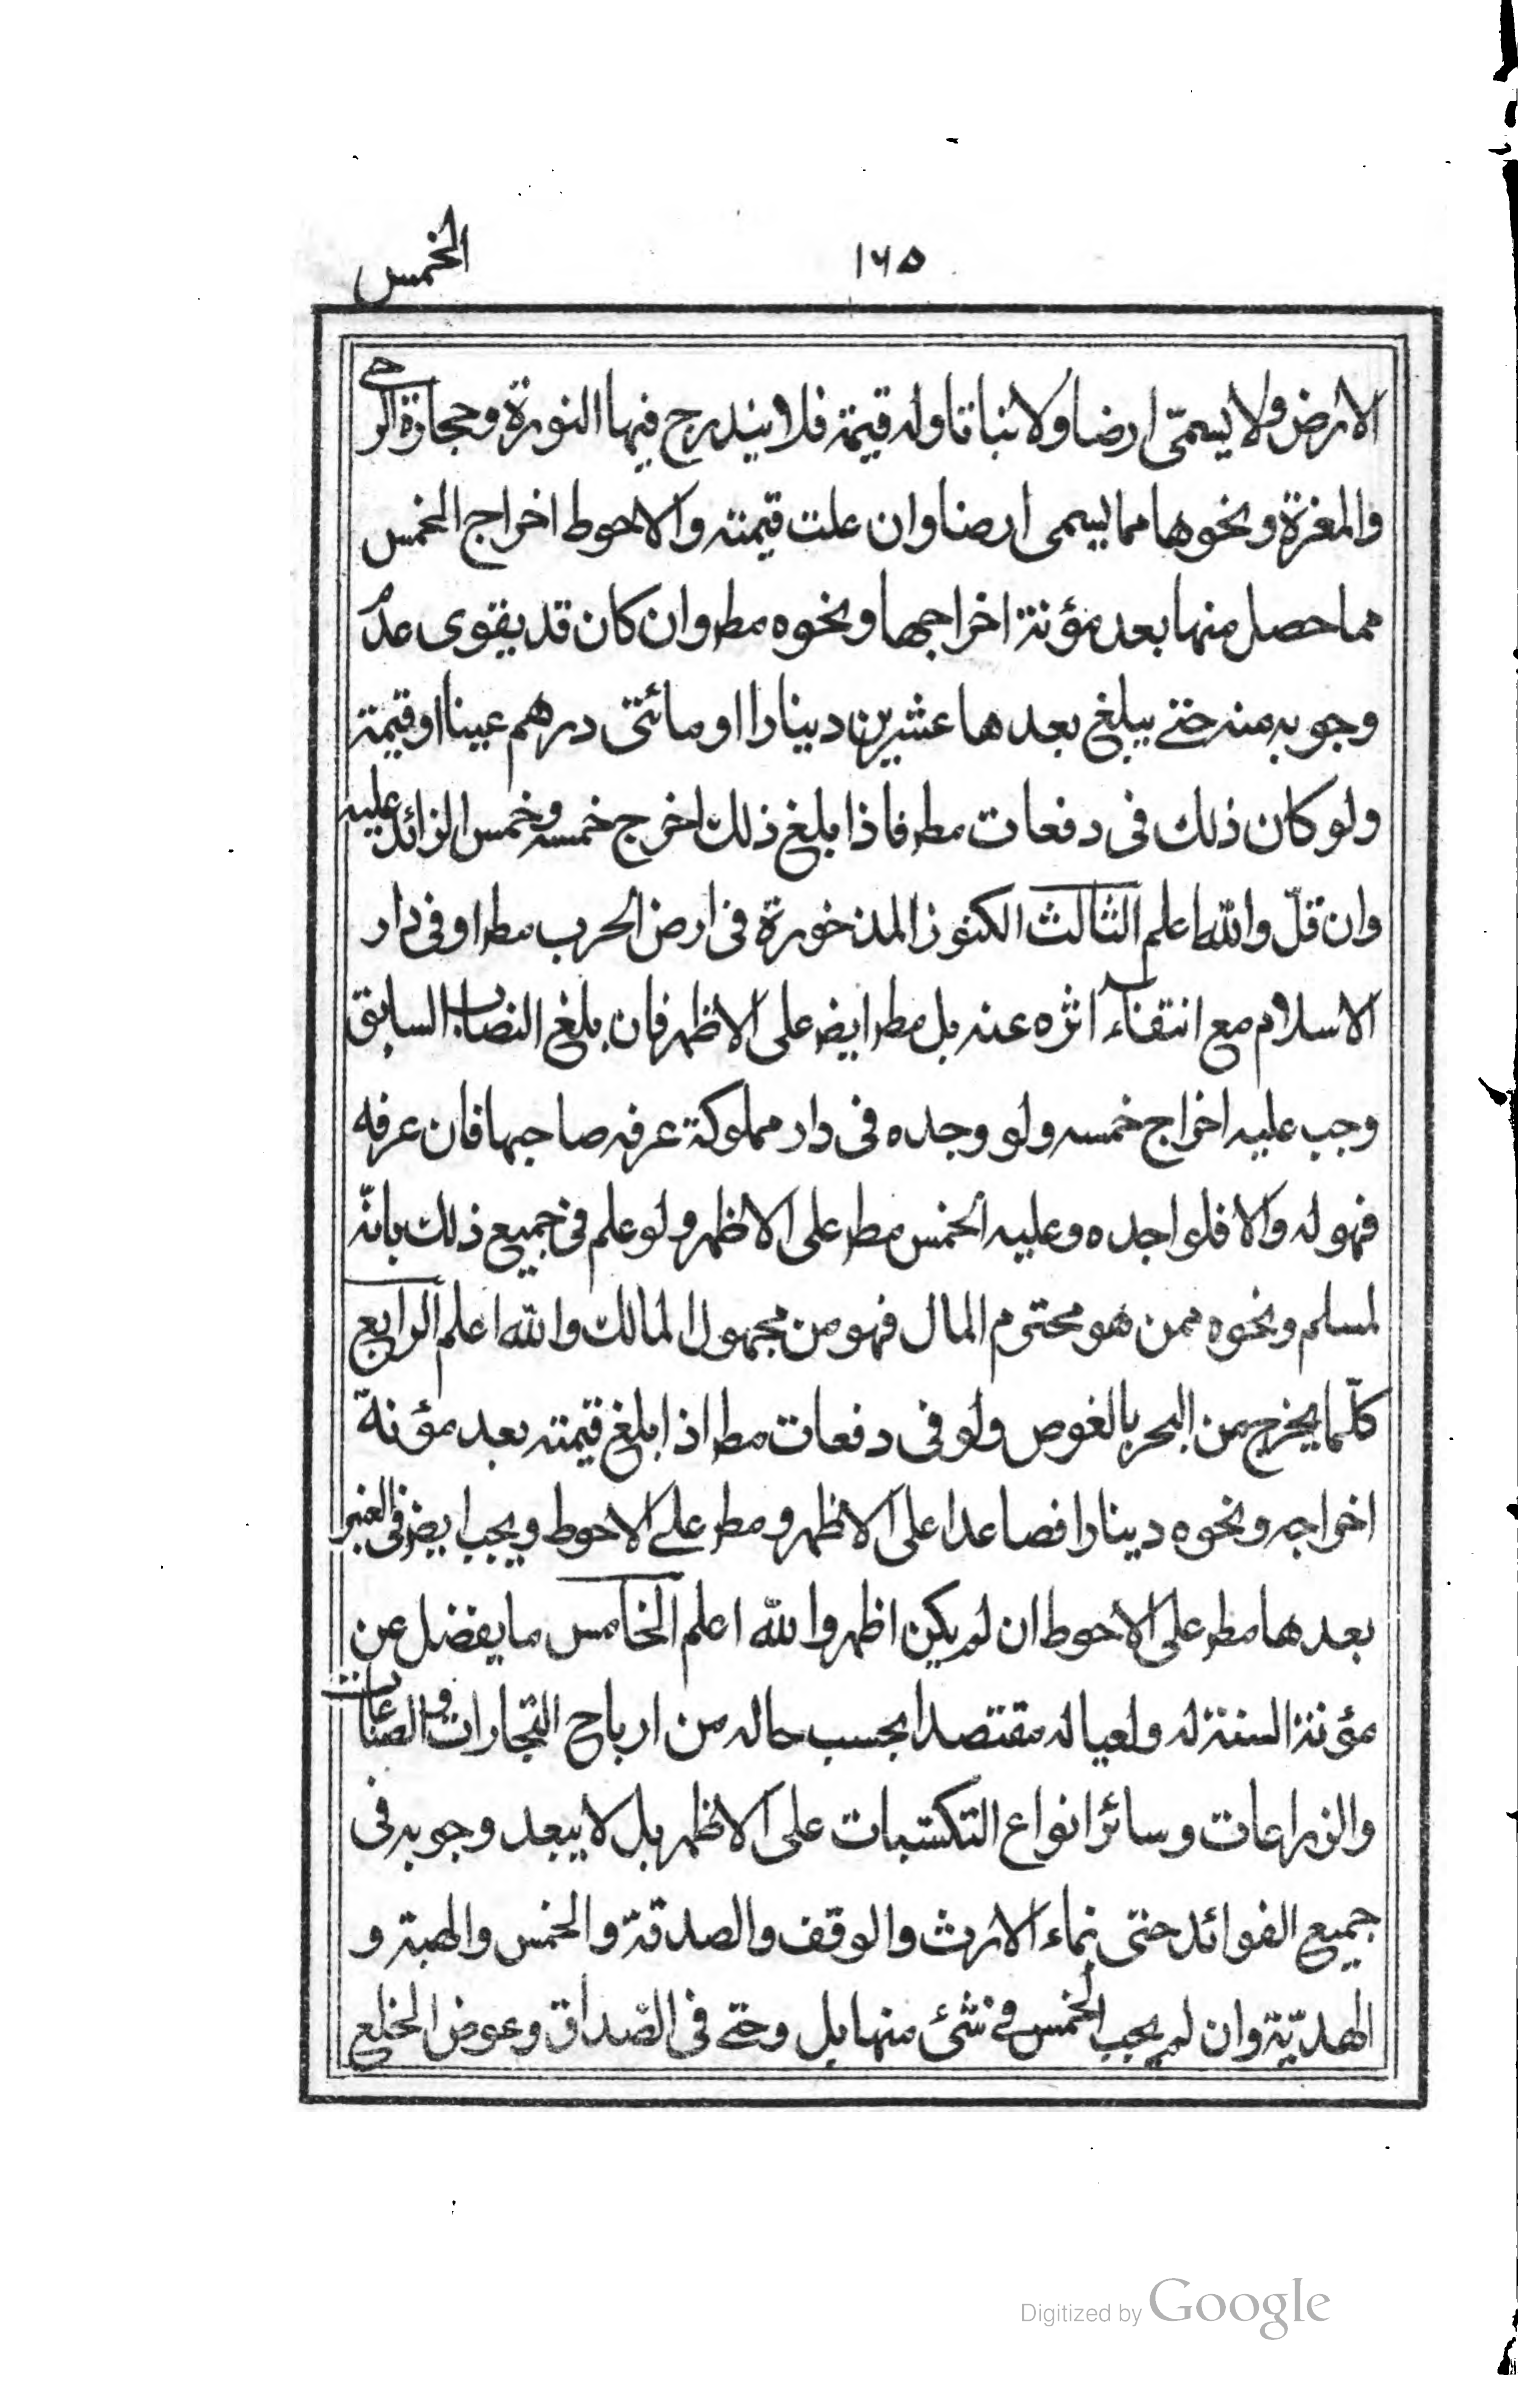 ١٦٥
الخمس
الارض ولا يسمّى ارضا ولا نباتا وله قيمة فلا يندرج فيها النورة وحجارة الرحى
والمغرة ونحوها مما يسمى ارضا وان علت قيمته والاحوط اخراج الخمس
مما حصل منها بعد مؤنة اخراجها ونحوه مط وان كان قد يقوى عدم
وجوبه منه حتى يبلغ بعدها عشرين دينارا او مائتى درهم عينا او قيمة
ولو كان ذلك فى دفعات مط فاذا بلغ ذلك اخرج خمسه وخمس الزائد عليه
وان قلّ والله اعلم الثالث الكنوز المذخورة فى ارض الحرب مط او فى دار
الاسلام مع انتفاء اثره عنه بل مط ايض على الاظهر فان بلغ النصاب السابق
وجب عليه اخراج خمسه ولو وجده فى دار مملوكة عرفه صاحبها فان عرفه
فهو له والا فلواجده وعليه الخمس مط على الاظهر ولو علم فى جميع ذلك بانّه
لمسلم ونحوه ممن هو محترم المال فهو من مجهول المالك والله اعلم الرابع
كلّما يخرج من البحر بالغوص ولو فى دفعات مط اذا بلغ قيمته بعد مؤنة
اخراجه ونحوه دينارا فصاعدا على الاظهر ومط على الاحوط ويجب ايض فى العنبر
بعدها مط على الاحوط ان لم يكن اظهر والله اعلم الخامس ما يفضل عن
مؤنة السنة له ولعياله مقتصدا بحسب حاله من ارباح التجارات والصناعات
والزراعات وسائر انواع التكسّبات على الاظهر بل لا يبعد وجوبه فى
جميع الفوائد حتى نماء الارث والوقف والصدقة والخمس والهبة و
الهديّة وان لم يجب الخمس فى شئ منها بل وحتى فى الصّداق وعوض الخلع
Digitized by Google